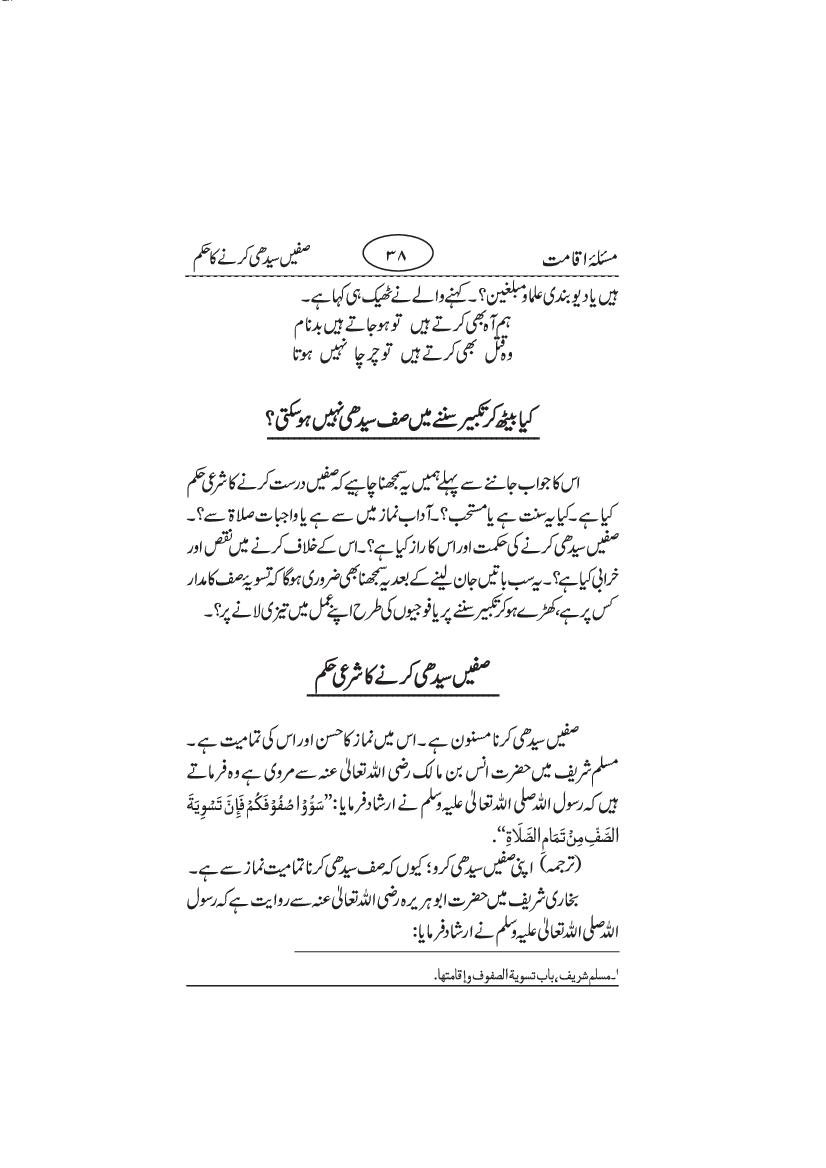 مسئلۂ اقامت ۳۸ صفیں سیدھی کرنے کا حکم
ہیں یا دیوبندی علما و مبلغین؟۔ کہنے والے نے ٹھیک ہی کہا ہے۔
ہم آہ بھی کرتے ہیں تو ہو جاتے ہیں بدنام
وہ قتل بھی کرتے ہیں تو چرچا نہیں ہوتا
کیا بیٹھ کر تکبیر سننے میں صف سیدھی نہیں ہو سکتی؟
اس کا جواب جاننے سے پہلے ہمیں یہ سمجھنا چاہیے کہ صفیں درست کرنے کا شرعی حکم
کیا ہے۔ کیا یہ سنت ہے یا مستحب؟۔ آداب نماز میں سے ہے یا واجبات صلاۃ سے؟۔
صفیں سیدھی کرنے کی حکمت اور اس کا راز کیا ہے؟۔ اس کے خلاف کرنے میں نقص اور
خرابی کیا ہے؟۔ یہ سب باتیں جان لینے کے بعد یہ سمجھنا بھی ضروری ہوگا کہ تسویۂ صف کا مدار
کس پر ہے، کھڑے ہو کر تکبیر سننے پر یا فوجیوں کی طرح اپنے عمل میں تیزی لانے پر؟۔
صفیں سیدھی کرنے کا شرعی حکم
صفیں سیدھی کرنا مسنون ہے۔ اس میں نماز کا حسن اور اس کی تمامیت ہے۔
مسلم شریف میں حضرت انس بن مالک رضی اللہ تعالیٰ عنہ سے مروی ہے وہ فرماتے
ہیں کہ رسول اللہ صلی اللہ تعالیٰ علیہ وسلم نے ارشاد فرمایا: ”سَوُّوْا صُفُوْفَكُمْ فَإِنَّ تَسْوِيَةَ
الصَّفِّ مِنْ تَمَامِ الصَّلَاةِ“.
(ترجمہ) اپنی صفیں سیدھی کرو؛ کیوں کہ صف سیدھی کرنا تمامیت نماز سے ہے۔
بخاری شریف میں حضرت ابو ہریرہ رضی اللہ تعالیٰ عنہ سے روایت ہے کہ رسول
اللہ صلی اللہ تعالیٰ علیہ وسلم نے ارشاد فرمایا:
۱۔ مسلم شریف، باب تسوية الصفوف وإقامتها.